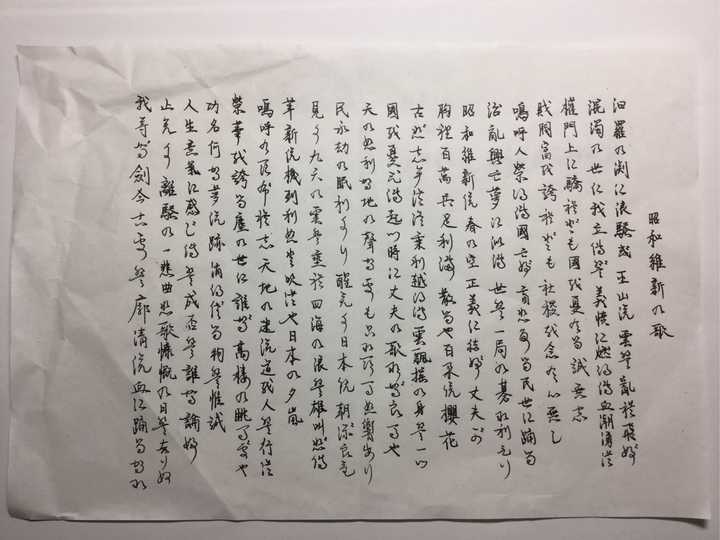 昭和維新の歌
汨羅の渕に浪騒ぎ巫山の雲は乱れ飛ぶ
混濁の世に我立てば義憤に燃えて血潮湧く
権門上に驕れども國を憂ふる誠無し
財閥富を誇れども社稷を念ふ心無し
嗚呼人榮え國亡ぶ盲たる民世に踊る
治乱興亡夢に似て世は一局の碁なりけり
昭和維新の春の空正義に結ぶ丈夫が
胸裡百萬兵足りて散るや百朶の櫻花
古びし
國を憂ひて起つ時に丈夫の歌なからめや
天の怒りか地の聲かそも只ならぬ響あり
民永劫の眠りより醒めよ日本の朝ぼらけ
見よ九天の雲は垂れ四海の浪は雄叫びて
革新の機到りぬと吹くや日本の夕嵐
嗚呼うらぶれし天地の迷の道を人は行く
榮華を誇る塵の世に誰が高樓の眺めぞや
功名何か夢の跡消えざるものは惟誠
人生意氣に感じては成否を誰か論ふ
止めよ離騒の一悲曲悲歌慷慨の日は去りぬ
我等が劍今こそは廓清の血に踊るかな